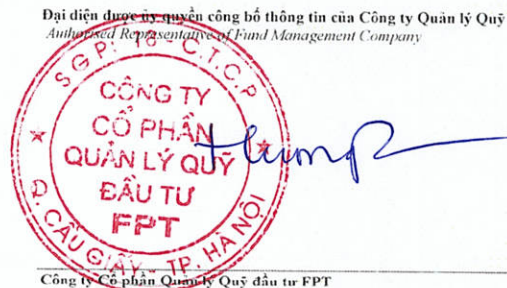 Đại diện được ủy quyền công bố thông tin của Công ty Quản lý Quỹ
Authorised Representative of Fund Management Company
CÔNG TY
CỔ PHẦN
QUẢN LÝ QUỸ
ĐẦU TƯ
FPT
Q. CẦU GIẤY - TP. HÀ NỘI
Công ty Cổ phần Quản lý Quỹ đầu tư FPT